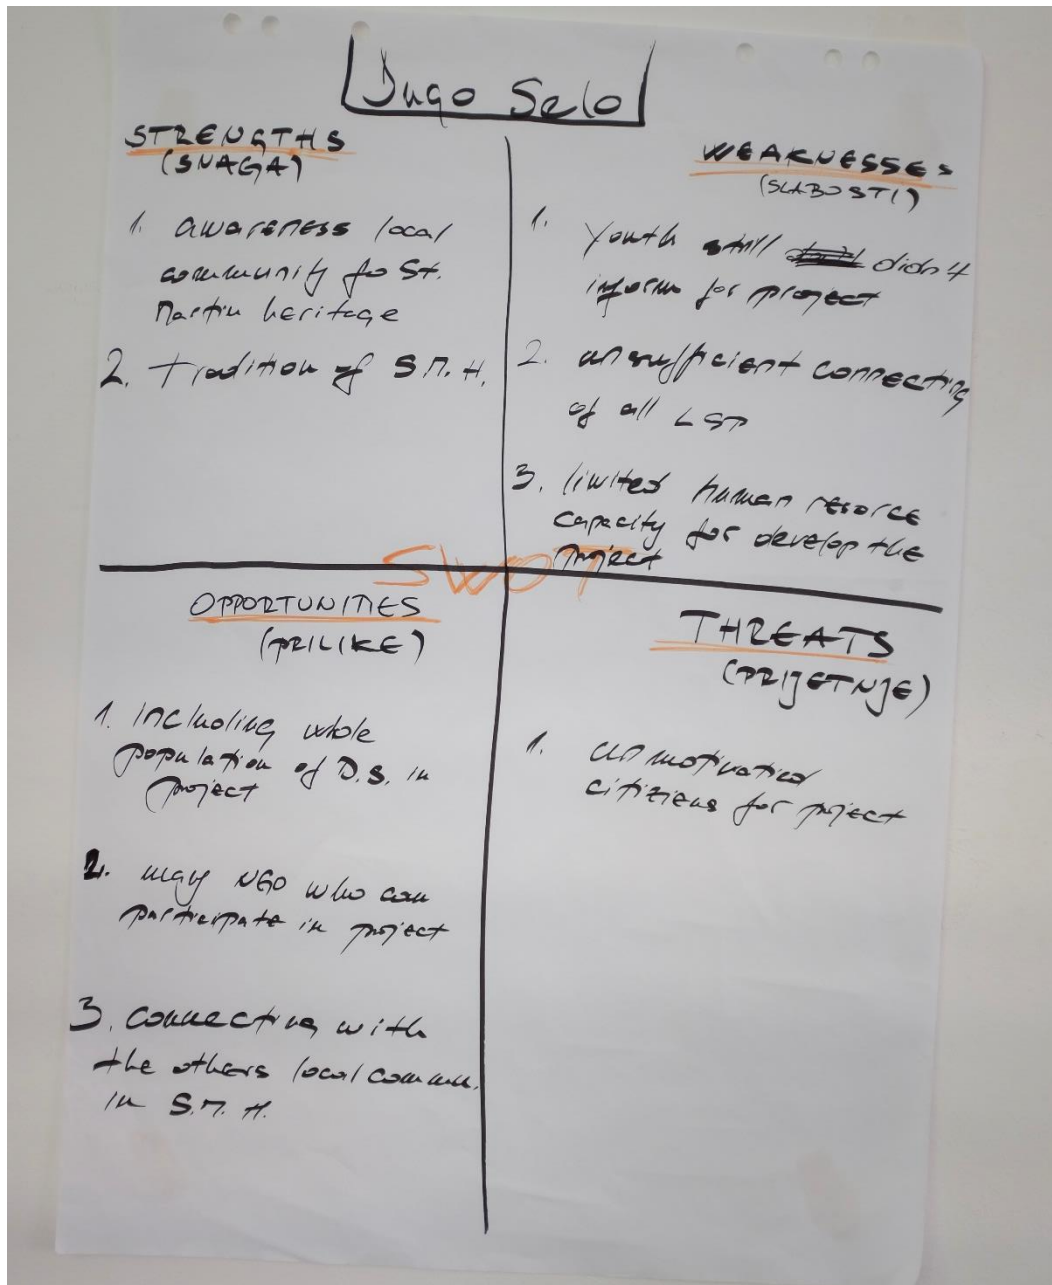 Dugo Selo
STRENGTHS
(SNAGA)
1. awareness local
community fo St.
Martin heritage
2. Tradition of S.M.H.
WEAKNESSES
(SLABOSTI)
1. Youth still didn't
inform for project
2. unsufficient connecting
of all LST
3. limited human resorce
capacity for develop the
project
SWOT
OPPORTUNITIES
(PRILIKE)
1. Including whole
population of D.S. in
project
2. many NGO who can
participate in project
3. Connecting with
the others local commun.
in S.M.H.
THREATS
(PRIJETNJE)
1. unmotivated
citiziens for project